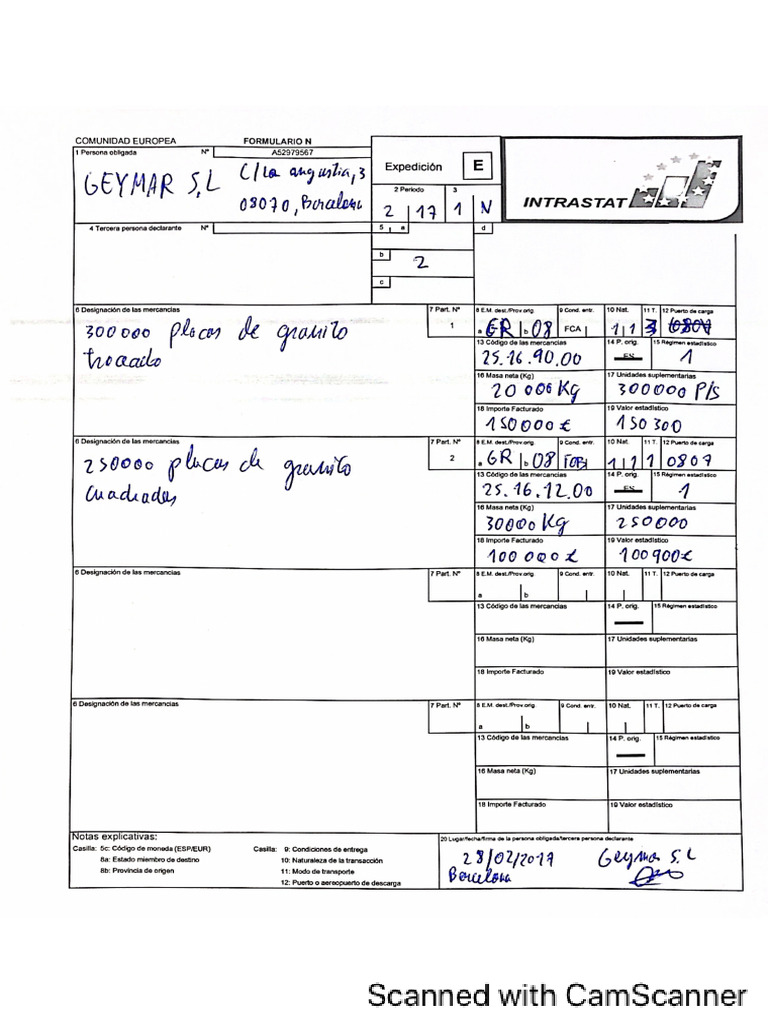 COMUNIDAD EUROPEA FORMULARIO N
1 Persona obligada Nº A52979567
GEYMAR S,L C/La angustia,3
08070, Barcelona
Expedición E
2 Periodo 3
2 17 1 N
INTRASTAT
4 Tercera persona declarante Nº
5 a d
b 2
c
6 Designación de las mercancías
300000 placas de granito
trocado
7 Part. Nº
1
8 E.M. dest./Prov.orig 9 Cond. entr. 10 Nat. 11 T. 12 Puerto de carga
a GR b 08 FCA 1 1 3 0801
13 Código de las mercancías 14 P. orig. 15 Régimen estadístico
25.16.90.00 ES 1
16 Masa neta (Kg) 17 Unidades suplementarias
20 000 Kg 300000 P/s
18 Importe Facturado 19 Valor estadístico
150000 € 150 300
6 Designación de las mercancías
250000 placas de granito
cuadradas
7 Part. Nº
2
8 E.M. dest./Prov.orig 9 Cond. entr. 10 Nat. 11 T. 12 Puerto de carga
a GR b 08 FOB 1 1 1 0807
13 Código de las mercancías 14 P. orig. 15 Régimen estadístico
25.16.12.00 ES 1
16 Masa neta (Kg) 17 Unidades suplementarias
30000 Kg 250000
18 Importe Facturado 19 Valor estadístico
100 000 € 100900€
6 Designación de las mercancías
7 Part. Nº
8 E.M. dest./Prov.orig 9 Cond. entr. 10 Nat. 11 T. 12 Puerto de carga
a b
13 Código de las mercancías 14 P. orig. 15 Régimen estadístico
16 Masa neta (Kg) 17 Unidades suplementarias
18 Importe Facturado 19 Valor estadístico
6 Designación de las mercancías
7 Part. Nº
8 E.M. dest./Prov.orig 9 Cond. entr. 10 Nat. 11 T. 12 Puerto de carga
a b
13 Código de las mercancías 14 P. orig. 15 Régimen estadístico
16 Masa neta (Kg) 17 Unidades suplementarias
18 Importe Facturado 19 Valor estadístico
Notas explicativas:
Casilla: 5c: Código de moneda (ESP/EUR)
8a: Estado miembro de destino
8b: Provincia de origen
Casilla: 9: Condiciones de entrega
10: Naturaleza de la transacción
11: Modo de transporte
12: Puerto o aereopuerto de descarga
20 Lugar/fecha/firma de la persona obligada/tercera persona declarante
28/02/2017 Geymar S.L
Barcelona
Scanned with CamScanner